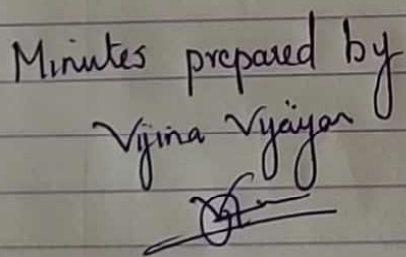 Minutes prepared by
Vijina Vijayan